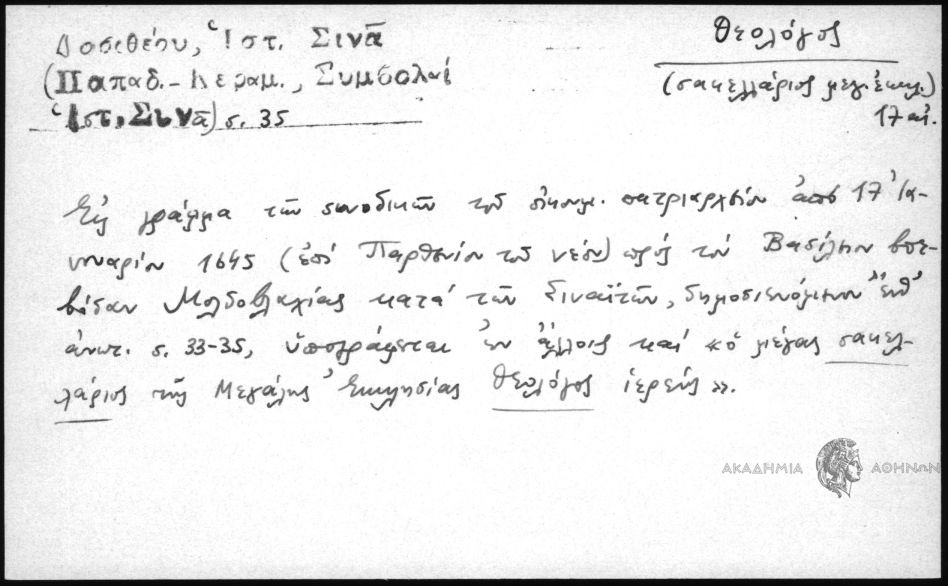 Δοσιθέου, Ἱστ. Σινᾶ
(Παπαδ.-Κεραμ., Συμβολαί
Ἱστ. Σινᾶ) σ. 35
Θεολόγος
(σακελλάριος μεγ. ἐκκλ.)
17 αἰ.
Εἰς γράμμα τῶν συνοδικῶν τοῦ οἰκουμ. πατριαρχείου ἀπό 17 Ἰα-
νουαρίου 1645 (ἐπί Παρθενίου τοῦ νέου) πρός τόν Βασίλειον βοε-
βόδαν Μολδοβλαχίας κατά τῶν Σιναϊτῶν, δημοσιευόμενον ἔνθ'
ἀνωτ. σ. 33-35, ὑπογράφεται ἐν ἄλλοις καί «ὁ μέγας σακελ-
λάριος τῆς Μεγάλης Ἐκκλησίας Θεολόγος ἱερεύς».
ΑΚΑΔΗΜΙΑ ΑΘΗΝΩΝ